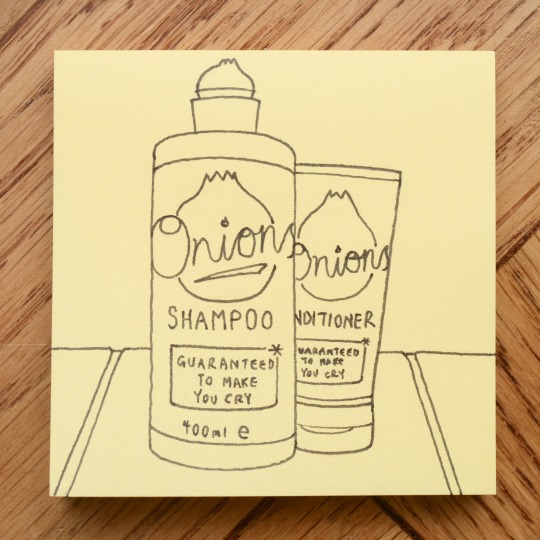 Onions
SHAMPOO
GUARANTEED*
TO MAKE
YOU CRY
400ml e
Onions
NDITIONER
UARANTEED*
TO MAKE
YOU CRY